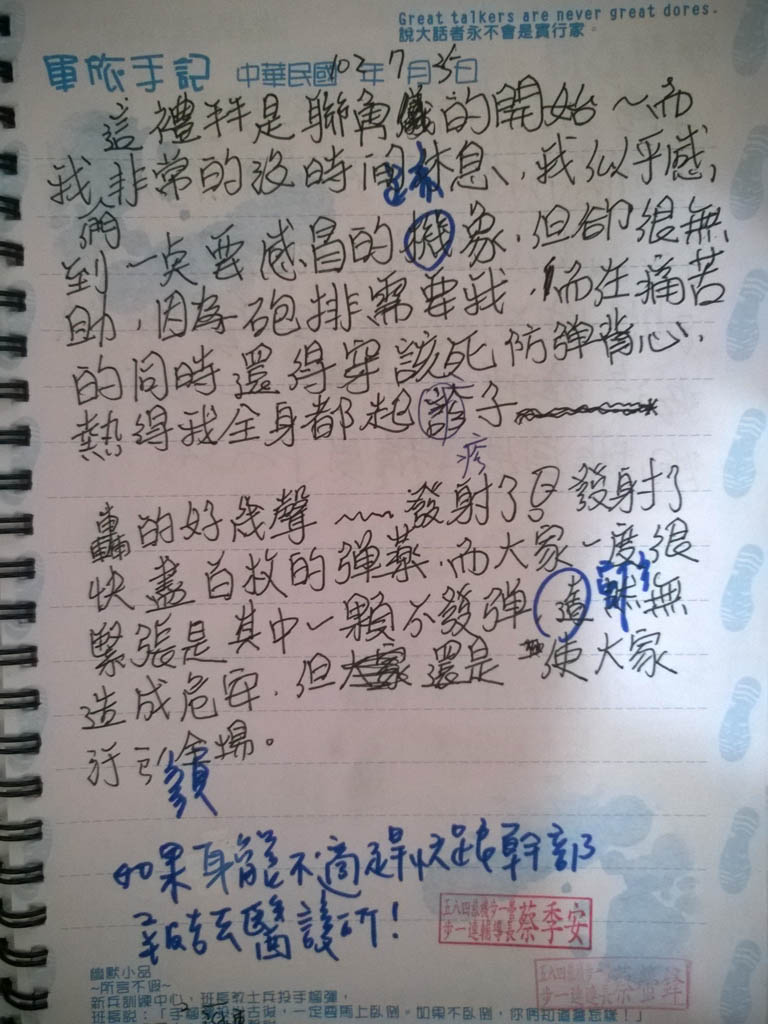 Great talkers are never great dores.
說大話者永不會是實行家。
軍旅手記 中華民國102年7月25日
這禮拜是聯勇的開始~而
我們非常的沒時間休息、我似乎感
到一点要感冒的機象,但卻很無
助,因為砲排需要我,而在痛苦
的同時還得穿該死防弹背心,
熱得我全身都起子
疹
轟的好幾聲~~發射了 發射了
快盡百枚的彈藥,而大家一度很
緊張是其中一顆不發彈 無
造成危安,但還是使大家
汗
如果身體不適趕快跟幹部
去醫護所!
五八四旅機步一營
步一連輔導長 蔡季安
幽默小品
~所言不假~
新兵訓練中心,班長教士兵投手榴彈,
班長說:「手榴彈 一定要馬上臥倒。如果不臥倒,你們知道會怎樣!」